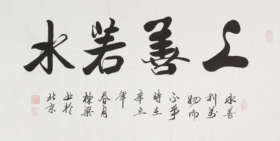 上善若水
水善
利萬
物而
不爭
時在
辛丑
年
春月
樑榮
書於
北京